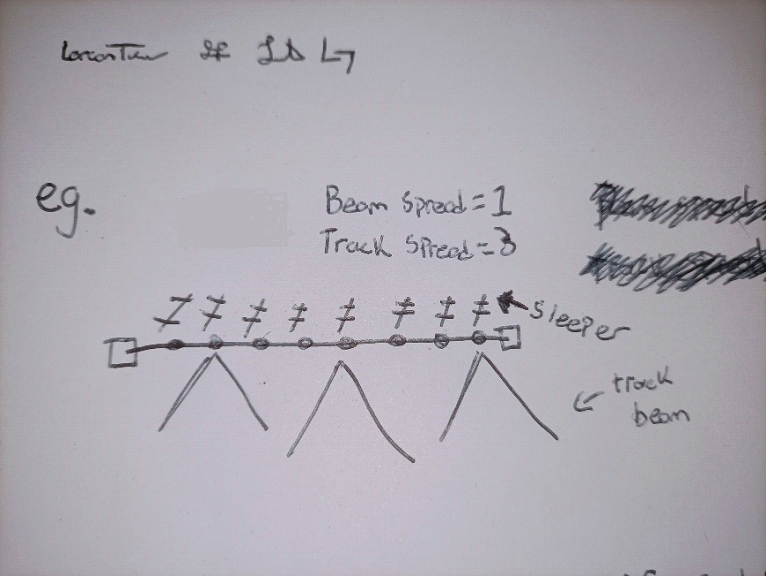 eg.
Beam Spread = 1
Track Spread = 3
sleeper
track
beam